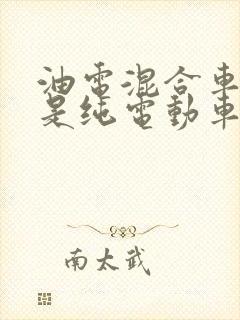 油電混合車
是純電動車
南太武